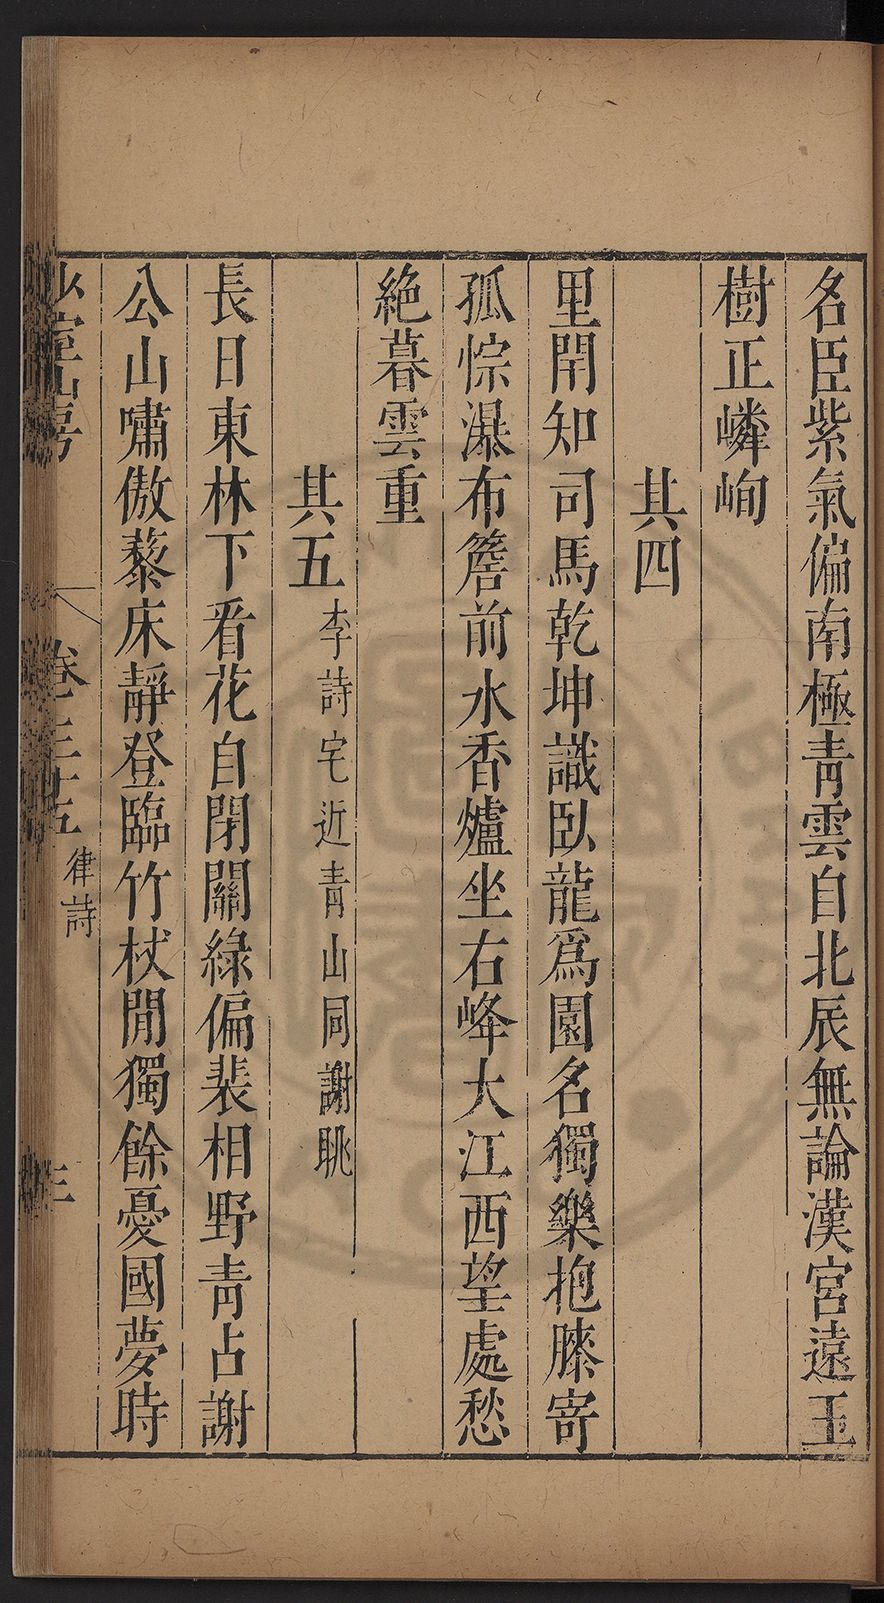 名臣紫氣偏南極青雲自北辰無論漢宮遠玉
樹正嶙峋
其四
里閈知司馬乾坤識臥龍爲園名獨樂抱膝寄
孤悰瀑布簷前水香爐坐右峰大江西望處愁
絶暮雲重
其五 李詩宅近青山同謝眺
長日東林下看花自閉關綠偏裴相野青占謝
公山嘯傲藜床靜登臨竹杖閒獨餘憂國夢時
少室山房 卷三十五 律詩 三